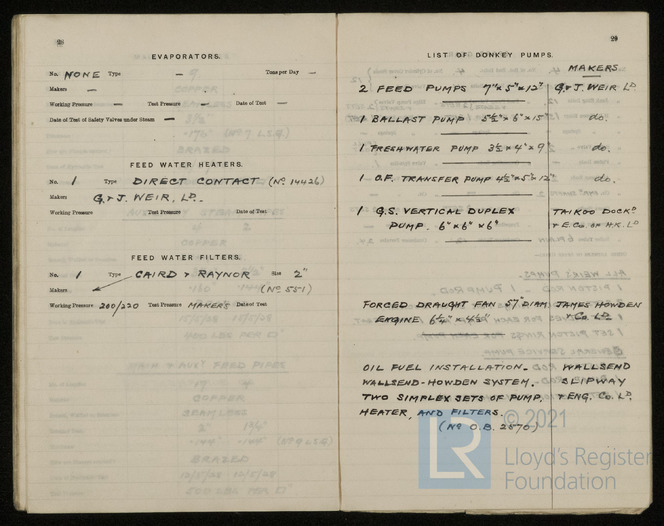 28
EVAPORATORS.
No. NONE Type — Tons per Day —
Makers —
Working Pressure — Test Pressure — Date of Test —
Date of Test of Safety Valves under Steam —
FEED WATER HEATERS.
No. 1 Type DIRECT CONTACT (No. 14426)
Makers G. & J. WEIR, LD.
Working Pressure Test Pressure Date of Test
FEED WATER FILTERS.
No. 1 Type CAIRD & RAYNOR Size 2"
Makers (No 551)
Working Pressure 200/220 Test Pressure MAKER'S Date of Test
29
LIST OF DONKEY PUMPS.
MAKERS.
2 FEED PUMPS 7" x 5" x 12" G. & J. WEIR LD
1 BALLAST PUMP 5½" x 6" x 15" do.
1 FRESHWATER PUMP 3½ x 4" x 9 do.
1 O.F. TRANSFER PUMP 4½" x 5" x 12" do.
1 G.S. VERTICAL DUPLEX TAIKOO DOCKD
PUMP. 6" x 6" x 6" & E. Co. OF H.K. LD
FORCED DRAUGHT FAN 57" DIAM. JAMES HOWDEN
ENGINE 6¼" x 4½" & Co. LD.
OIL FUEL INSTALLATION. WALLSEND
WALLSEND-HOWDEN SYSTEM. SLIPWAY
TWO SIMPLEX SETS OF PUMP, & ENG. Co. LD.
HEATER, AND FILTERS.
(No O.B. 2570)
© 2021
LR
Lloyd's Register
Foundation